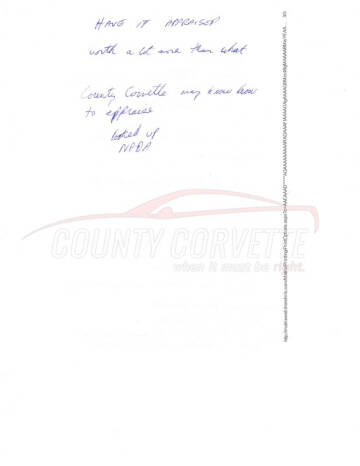 HAVE IT APPRAISED
worth a lot more than what
County Corvette may know how
to appraise
looked up
NADA
COUNTY CORVETTE
when it must be right.